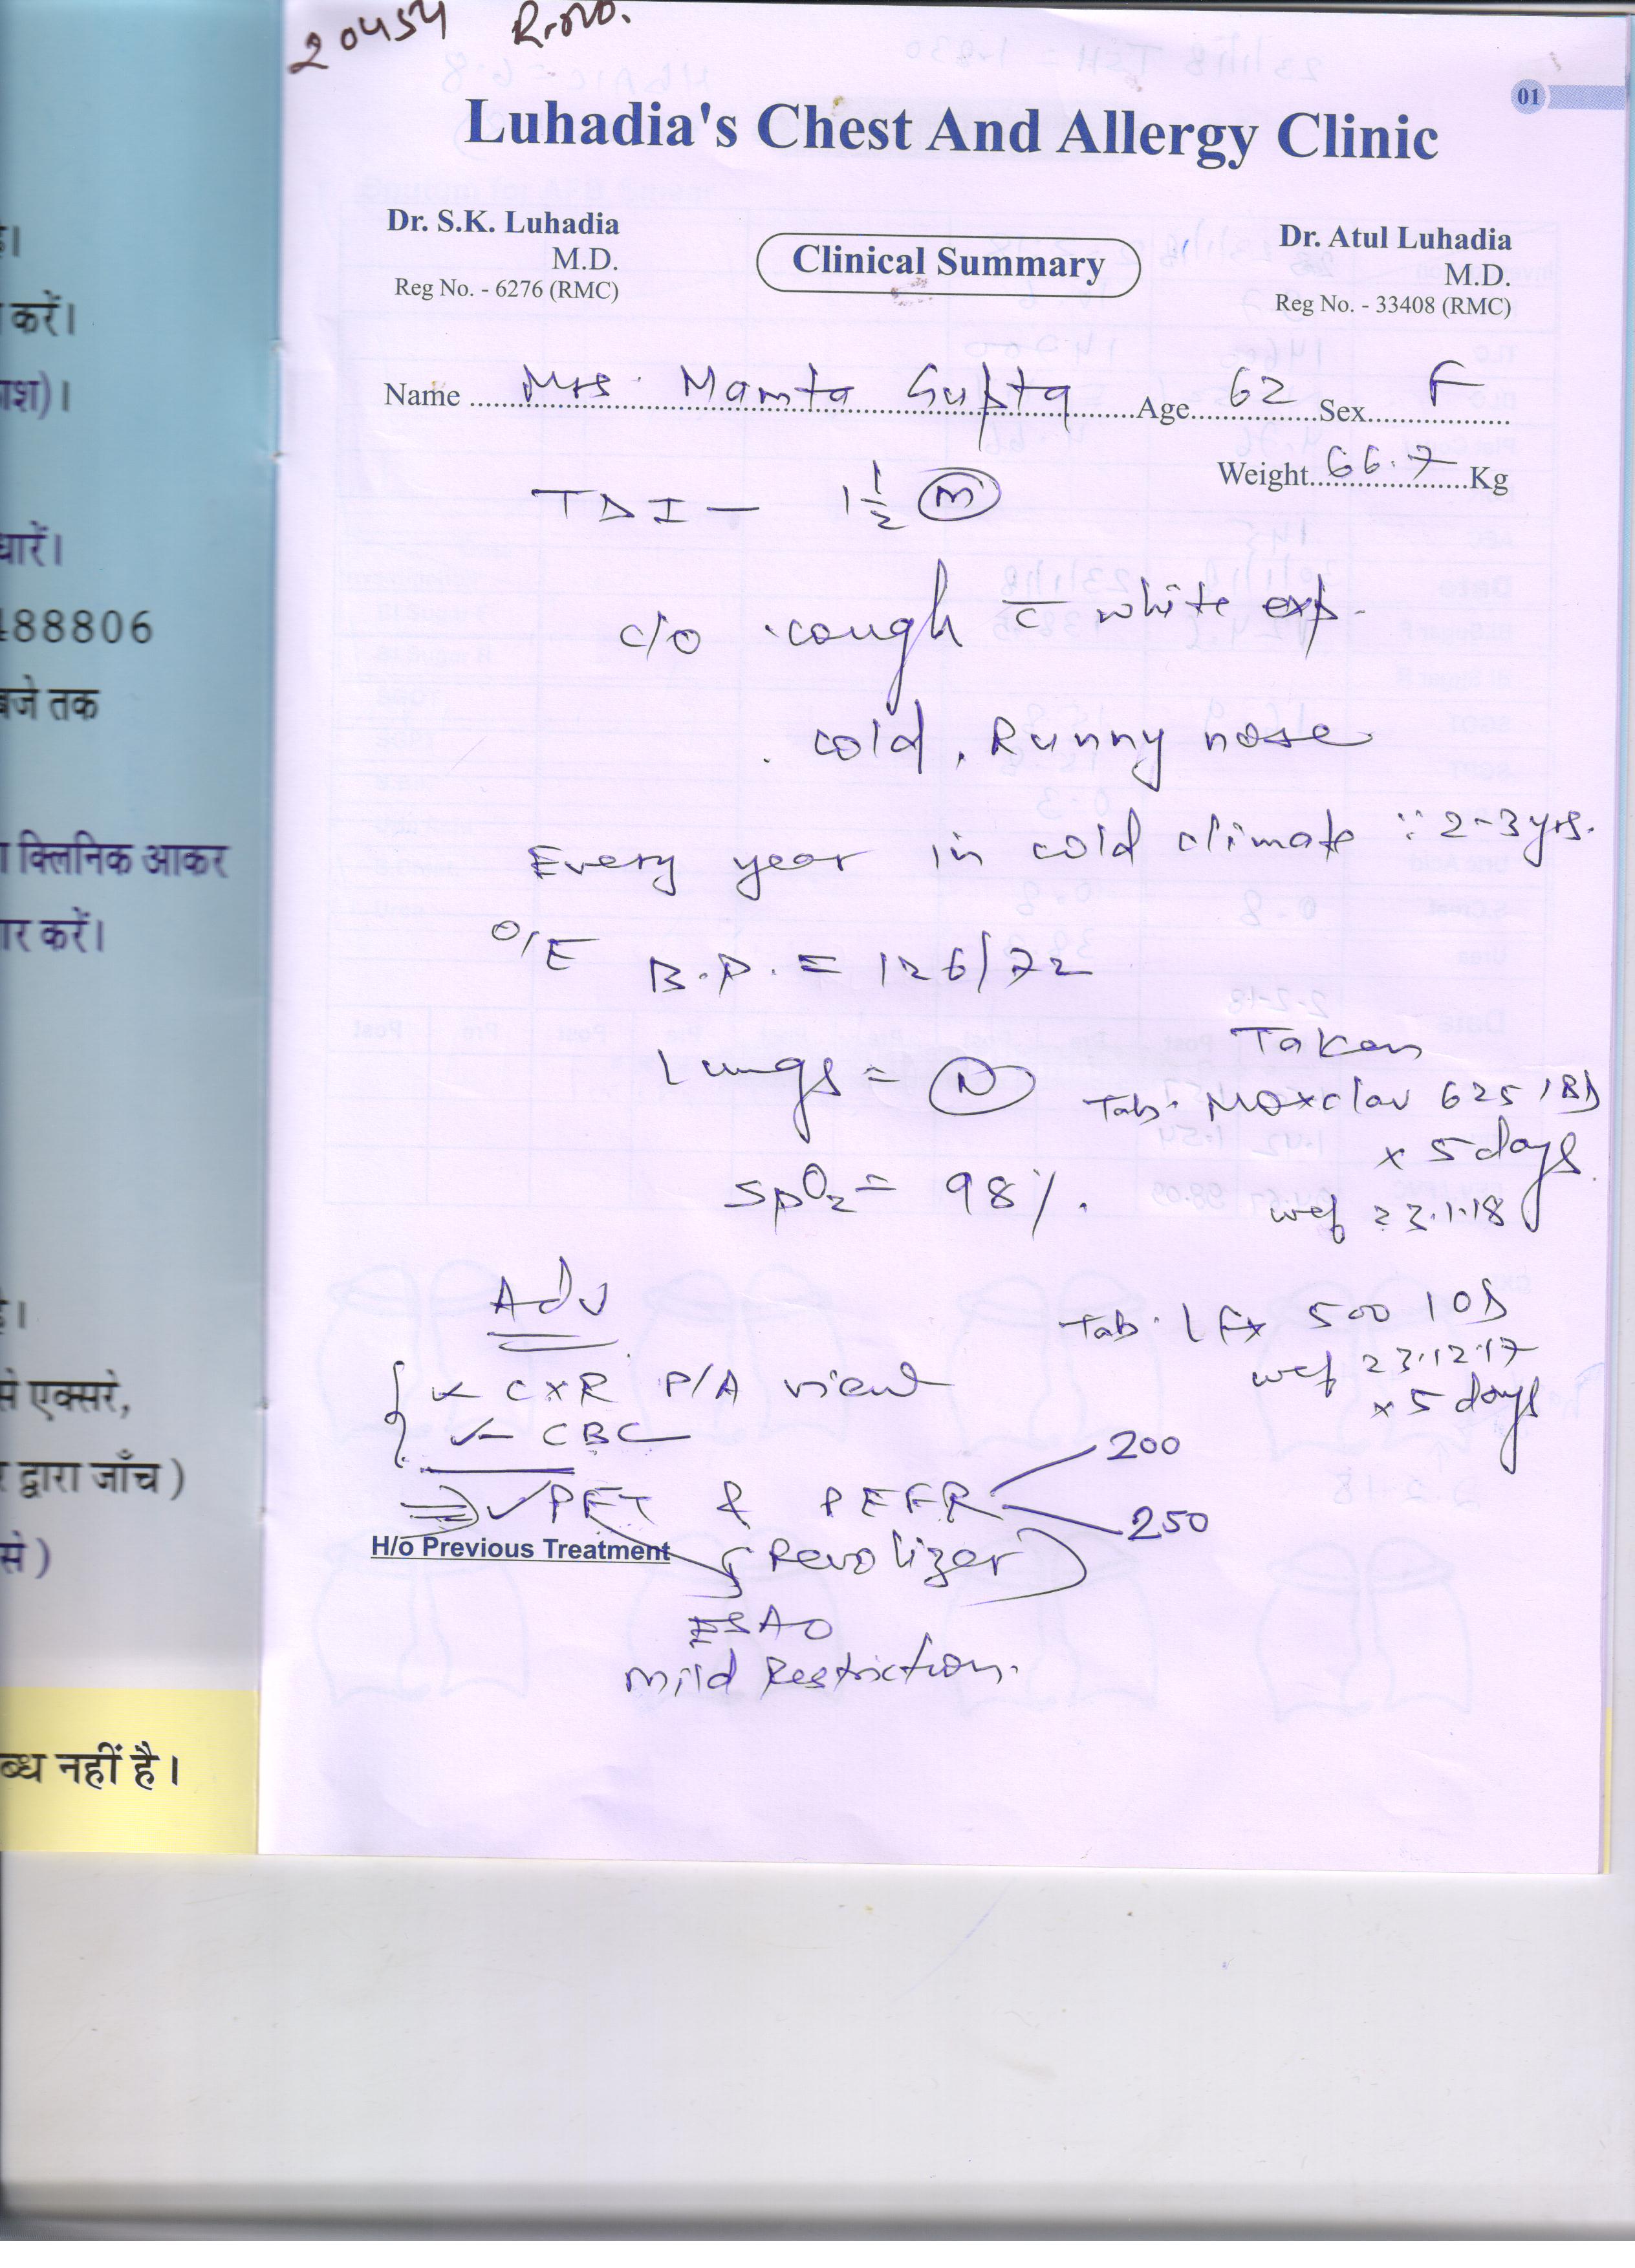 20454 R.No.
01
Luhadia's Chest And Allergy Clinic
Dr. S.K. Luhadia
M.D.
Reg No. - 6276 (RMC)
Clinical Summary
Dr. Atul Luhadia
M.D.
Reg No. - 33408 (RMC)
Name Mrs. Mamta Gupta Age 62 Sex F
Weight 66.7 Kg
TDI - 1 1/2 (M)
c/o cough c̄ white exp.
cold, Runny nose
Every year in cold climate :: 2-3 yrs.
O/E B.P. = 126/72
Lungs = (N)
SpO2 = 98%.
Taken
Tab. Moxclav 625 1BD
x 5 days
wef 23.1.18
Tab. LFX 500 1OD
wef 23.12.17
x 5 days
Adv
CXR P/A view
CBC
PFT & PEFR 200
250
H/o Previous Treatment
(Revolizer)
ESAO
Mild Restriction.
है।
करें।
धारें।
488806
बजे तक
क्लिनिक आकर
करें।
है।
से एक्सरे,
द्वारा जाँच )
से )
नहीं है।